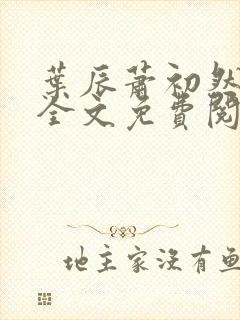 葉辰蕭初然
全文免費閱
地主家沒有魚